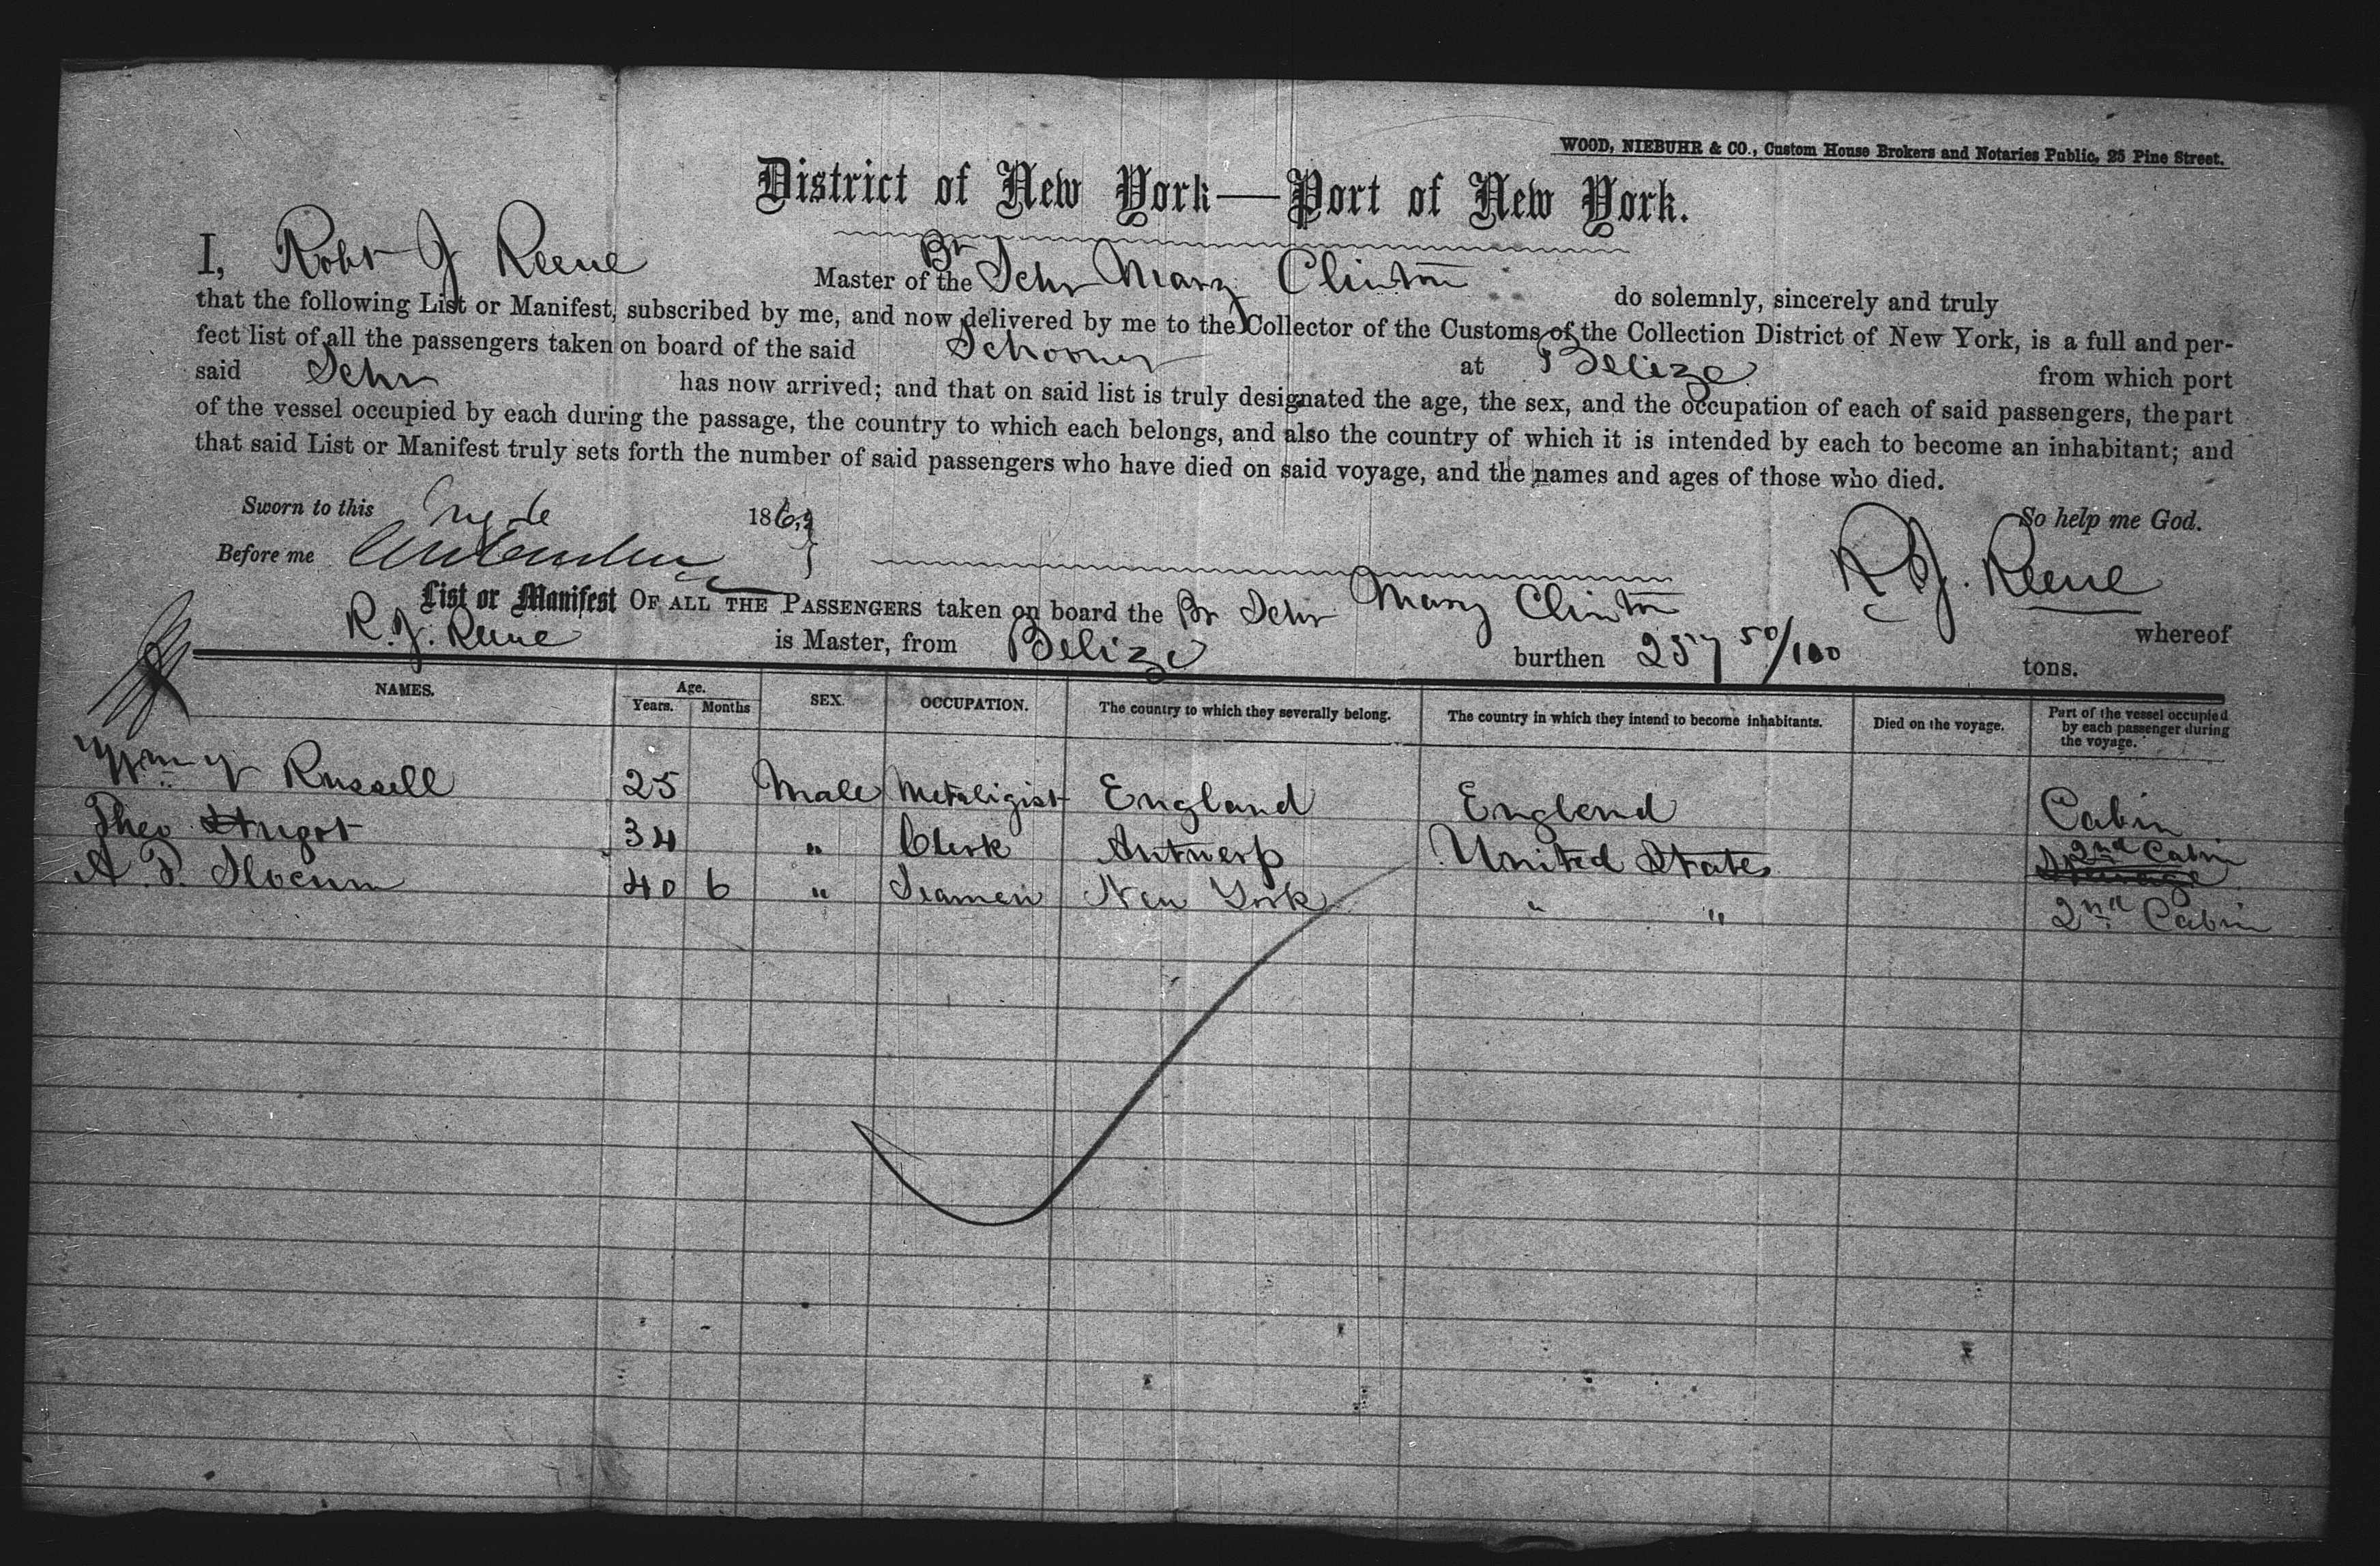 WOOD, NIEBUHR & CO., Custom House Brokers and Notaries Public, 25 Pine Street.
District of New York—Port of New York.
I, Robt J Reene Master of the Br Schr Mary Clinton do solemnly, sincerely and truly
that the following List or Manifest, subscribed by me, and now delivered by me to the Collector of the Customs of the Collection District of New York, is a full and per-
fect list of all the passengers taken on board of the said Schooner at Belize from which port
said Schr has now arrived; and that on said list is truly designated the age, the sex, and the occupation of each of said passengers, the part
of the vessel occupied by each during the passage, the country to which each belongs, and also the country of which it is intended by each to become an inhabitant; and
that said List or Manifest truly sets forth the number of said passengers who have died on said voyage, and the names and ages of those who died.
Sworn to this 186 So help me God.
Before me R J. Reene
List or Manifest OF ALL THE PASSENGERS taken on board the Br Schr Mary Clinton whereof
R. J. Reene is Master, from Belize burthen 257 50/100 tons.
NAMES. Age. Years. Months SEX. OCCUPATION. The country to which they severally belong. The country in which they intend to become inhabitants. Died on the voyage. Part of the vessel occupied by each passenger during the voyage.
Wm Russell 25 Male Metaligist England England Cabin
Theo Hugot 34 " Clerk Antwerp United States 2nd Cabin
Steerage
A. P. Slocum 40 6 " Seamen New York " " 2nd Cabin